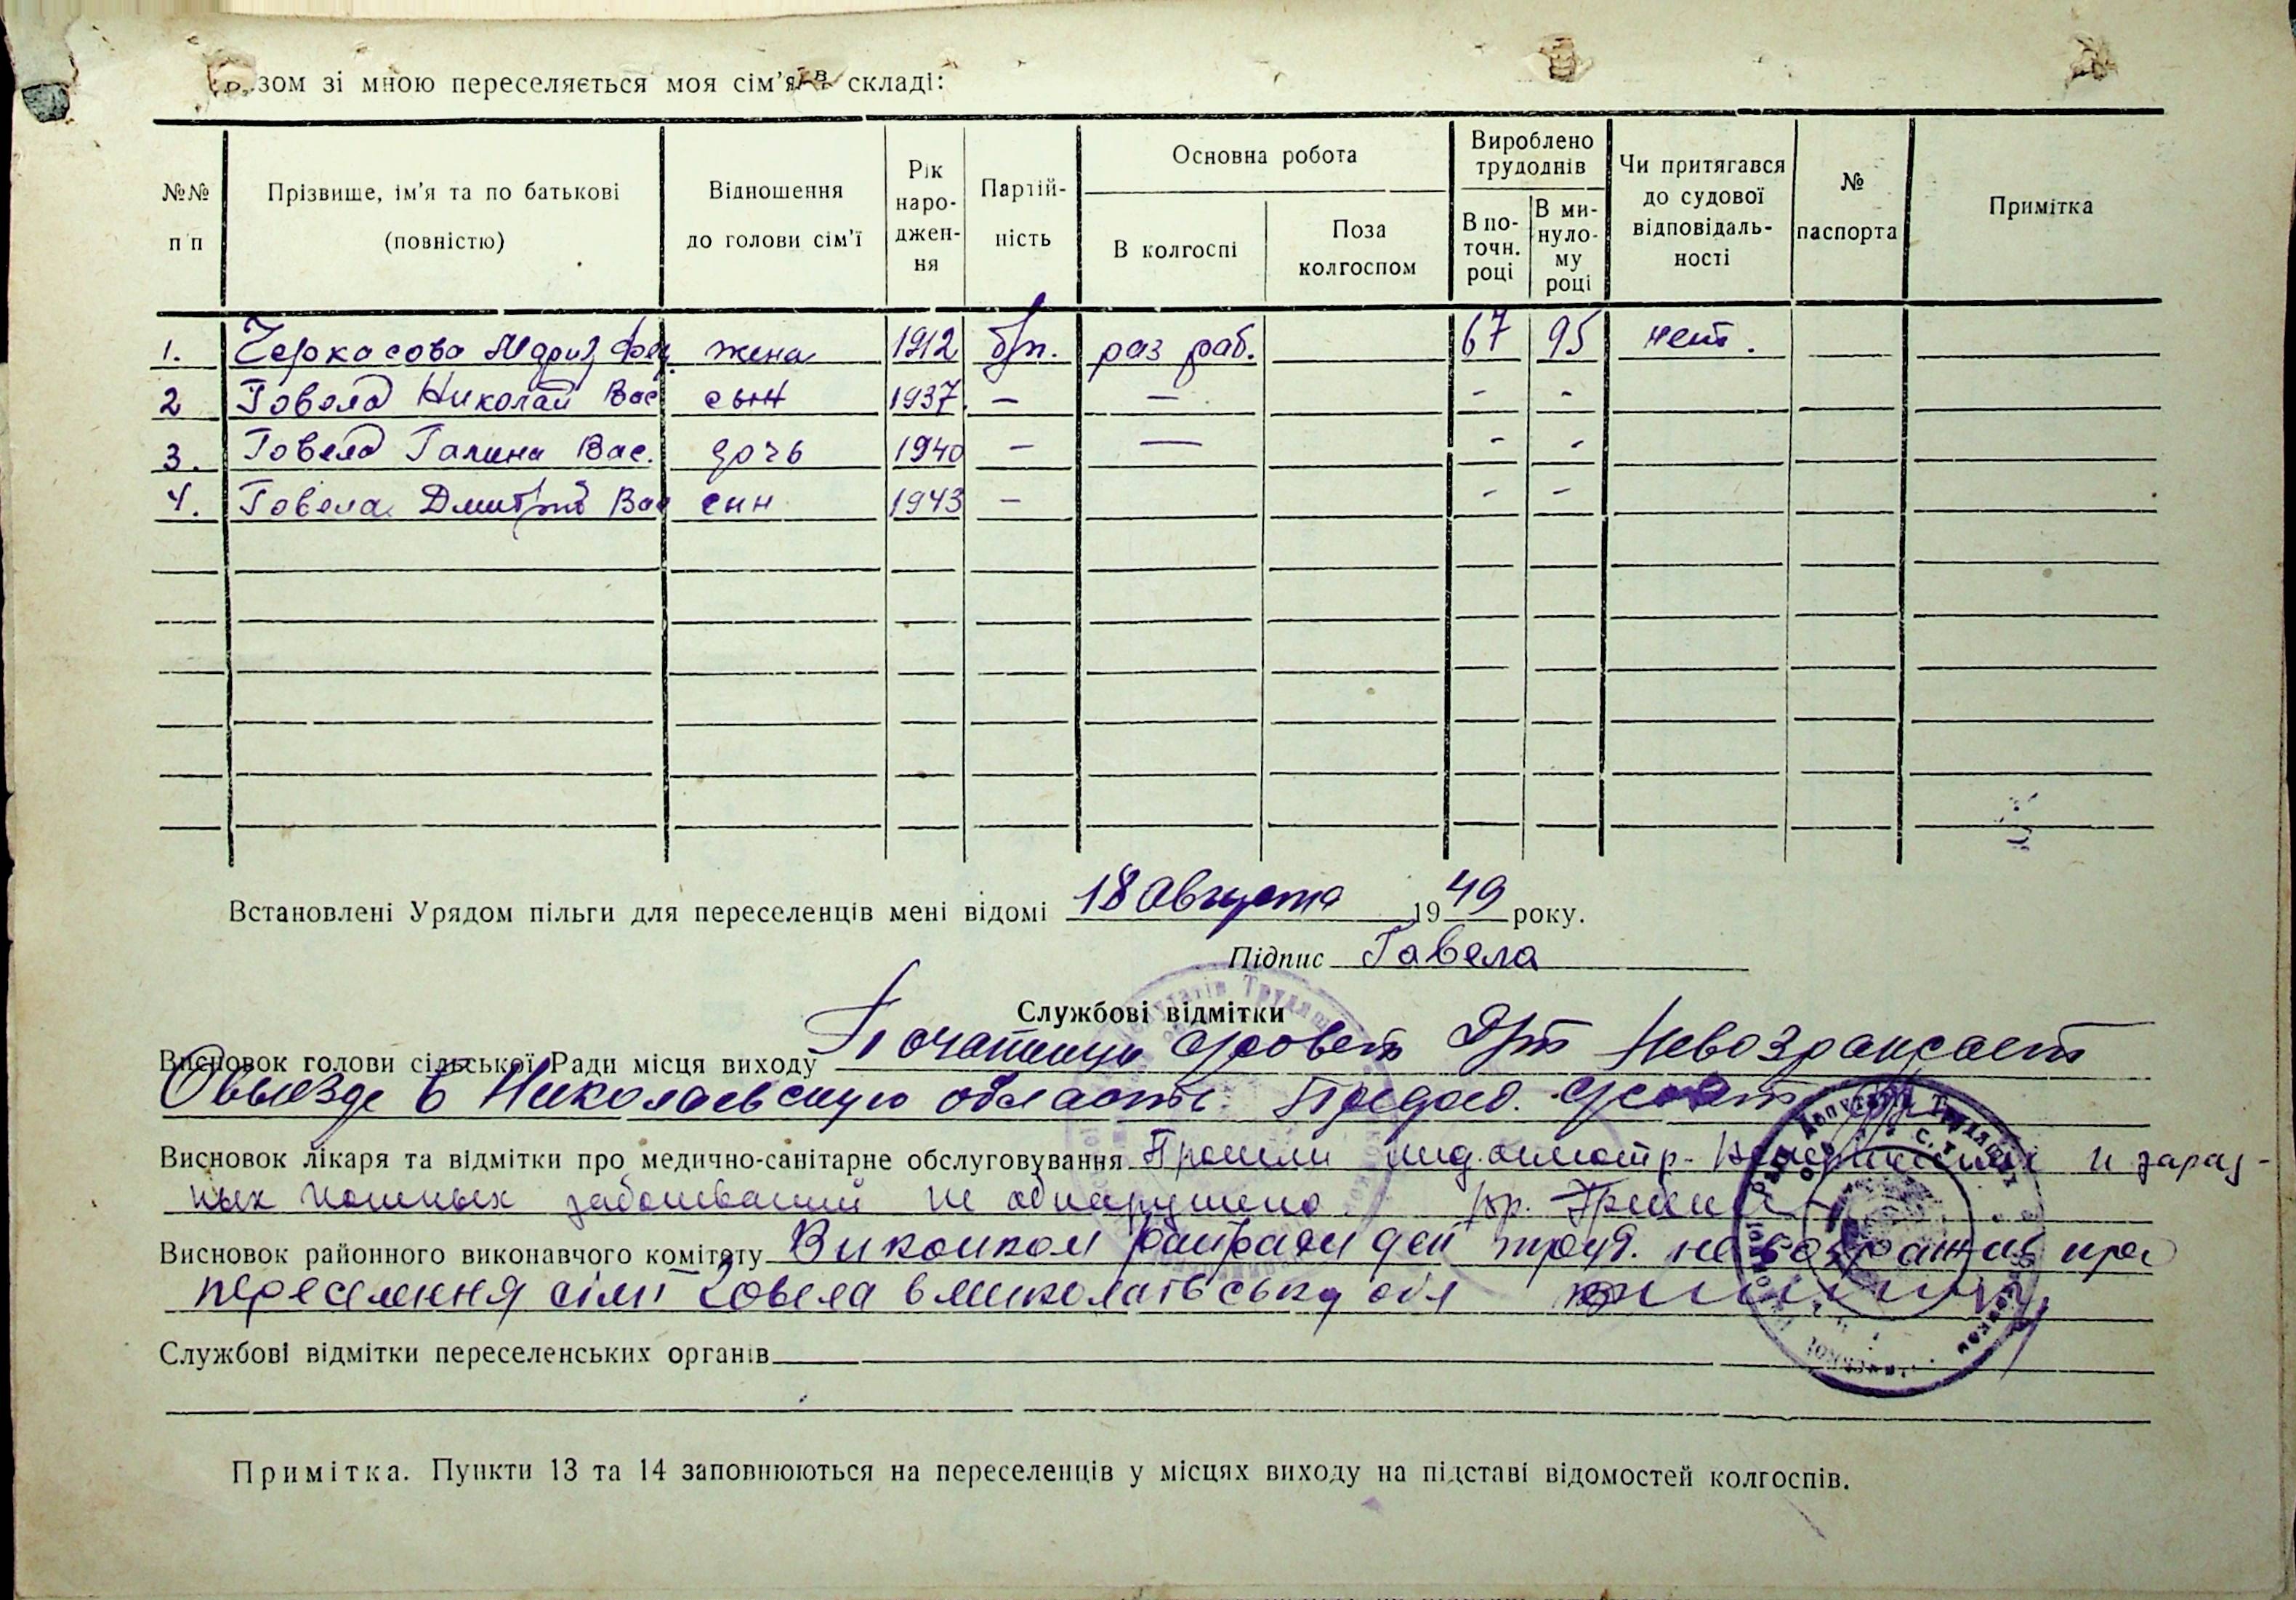 Разом зі мною переселяється моя сім'я в складі:
№№ п п
Прізвище, ім'я та по батькові (повністю)
Відношення до голови сім'ї
Рік народження
Партійність
Основна робота
В колгоспі
Поза колгоспом
Вироблено трудоднів
В поточн. році
В минулому році
Чи притягався до судової відповідальності
№ паспорта
Примітка
1. Черкасова Мария Фед жена 1912 б/п. раз раб. 67 95 нет.
2 Говела Николай Вас сын 1937 — — - -
3. Говела Галина Вас. дочь 1940 — — - -
4. Говела Дмитрий Вас син 1943 — - -
Встановлені Урядом пільги для переселенців мені відомі 18 Августа 1949 року.
Підпис Гавела
Службові відмітки
Висновок голови сільської Ради місця виходу
О выезде в Николаевскую область.
Висновок лікаря та відмітки про медично-санітарне обслуговування Прошли мед. осмотр. Венерических и зараз-
ных кожных заболеваний не обнаружено. Вр.
Висновок районного виконавчого комітету Виконком райради деп труд. не возражає про
переселення сімї Говела в миколаївську обл
Службові відмітки переселенських органів
Примітка. Пункти 13 та 14 заповнюються на переселенців у місцях виходу на підставі відомостей колгоспів.